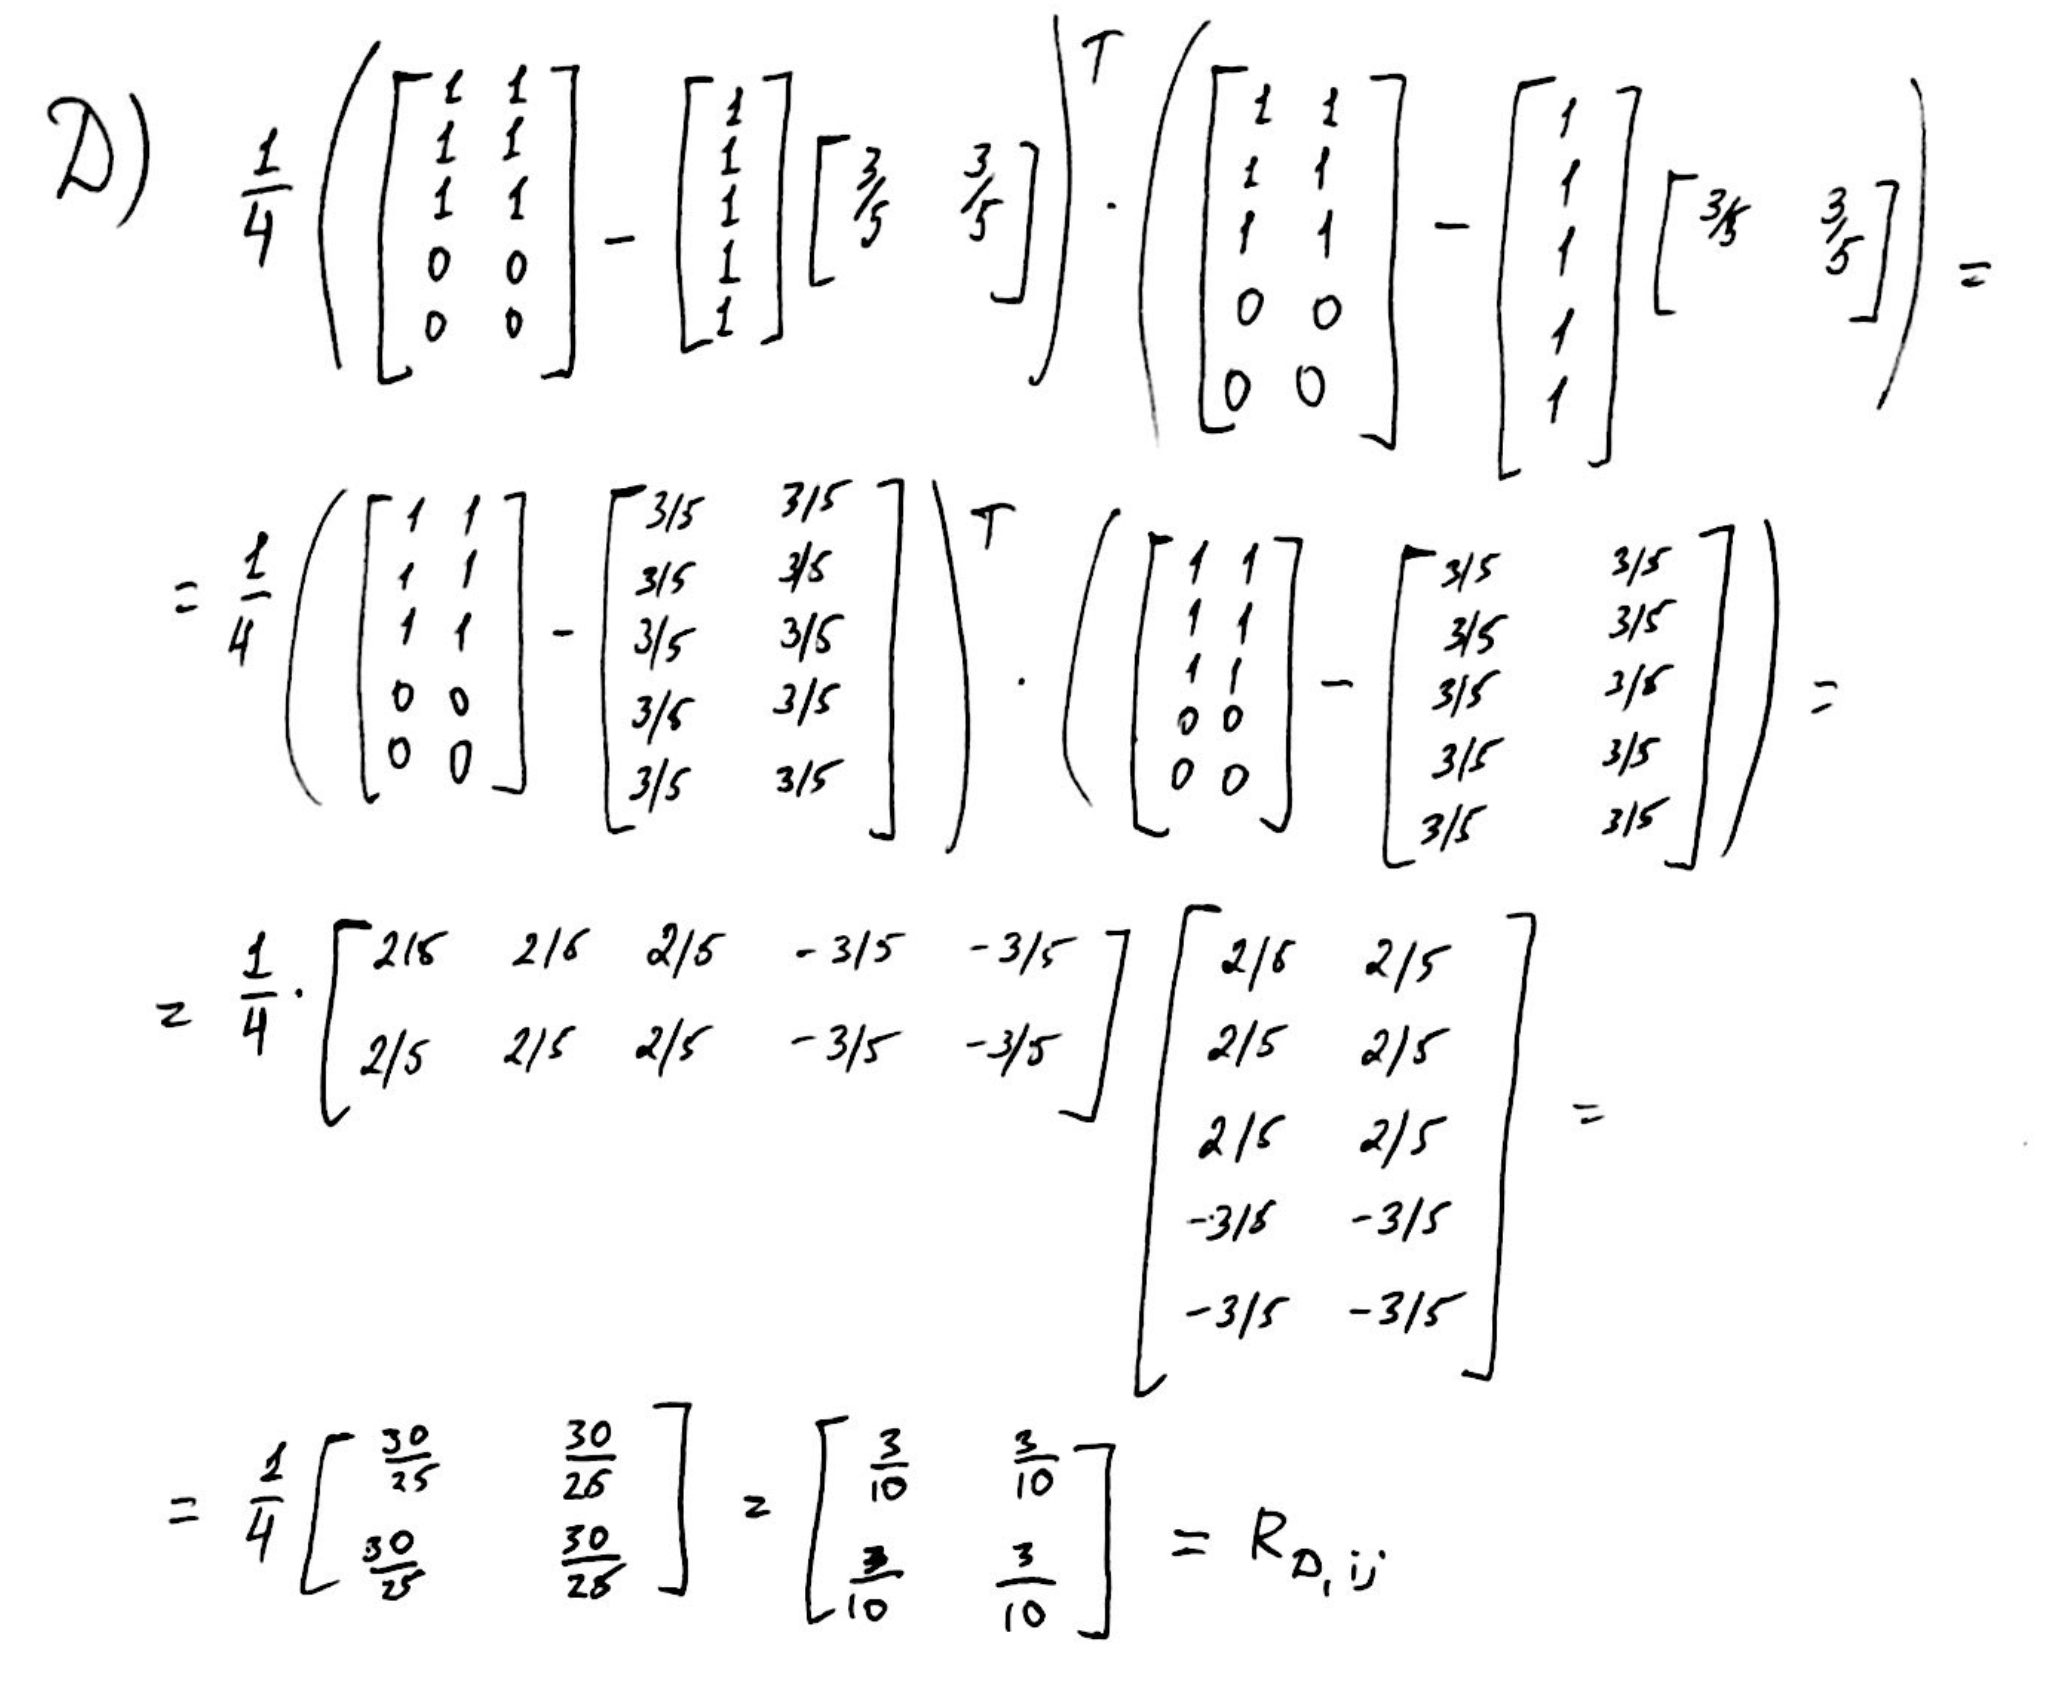 D) 1/4 ( [ 1 1 ; 1 1 ; 1 1 ; 0 0 ; 0 0 ] - [ 1 ; 1 ; 1 ; 1 ; 1 ] [ 3/5 3/5 ] )^T · ( [ 1 1 ; 1 1 ; 1 1 ; 0 0 ; 0 0 ] - [ 1 ; 1 ; 1 ; 1 ; 1 ] [ 3/5 3/5 ] ) =
= 1/4 ( [ 1 1 ; 1 1 ; 1 1 ; 0 0 ; 0 0 ] - [ 3/5 3/5 ; 3/5 3/5 ; 3/5 3/5 ; 3/5 3/5 ; 3/5 3/5 ] )^T · ( [ 1 1 ; 1 1 ; 1 1 ; 0 0 ; 0 0 ] - [ 3/5 3/5 ; 3/5 3/5 ; 3/5 3/5 ; 3/5 3/5 ; 3/5 3/5 ] ) =
= 1/4 · [ 2/5 2/5 2/5 -3/5 -3/5 ; 2/5 2/5 2/5 -3/5 -3/5 ] [ 2/5 2/5 ; 2/5 2/5 ; 2/5 2/5 ; -3/5 -3/5 ; -3/5 -3/5 ] =
= 1/4 [ 30/25 30/25 ; 30/25 30/25 ] = [ 3/10 3/10 ; 3/10 3/10 ] = R_D, ij